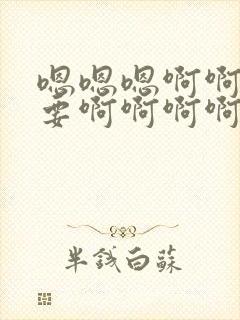 嗯嗯嗯啊啊
要啊啊啊啊
半钱白蘇